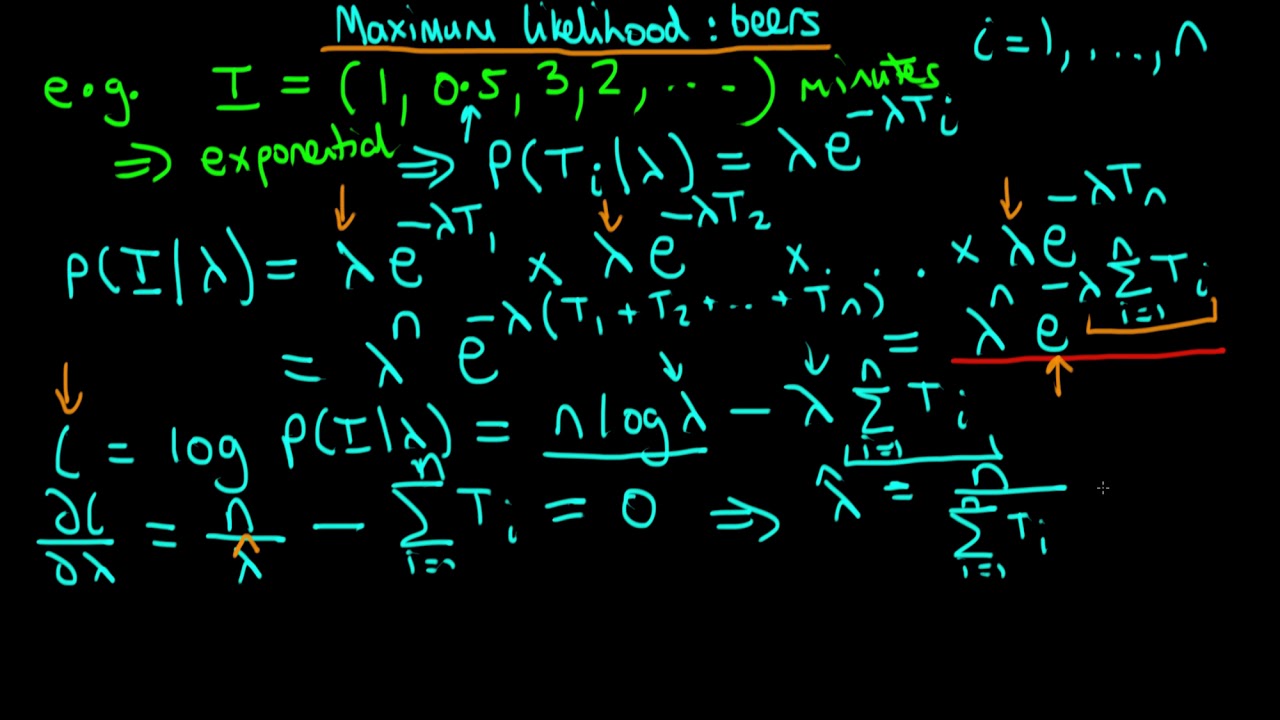 Maximum likelihood : beers
i = 1, . . . , n
e.g. I = (1, 0.5, 3, 2, . . . ) minutes
⇒ exponential ⇒ P(T_i | λ) = λe^{-λT_i}
P(I | λ) = λe^{-λT_1} × λe^{-λT_2} × . . . × λe^{-λT_n}
= λ^n e^{-λ(T_1 + T_2 + ... + T_n)} = λ^n e^{-λ∑_{i=1}^{n} T_i}
l = log P(I | λ) = n log λ − λ ∑_{i=1}^{n} T_i
∂l/∂λ = n/λ̂ − ∑_{i=1}^{n} T_i = 0 ⇒ λ̂ = n/∑_{i=1}^{n} T_i